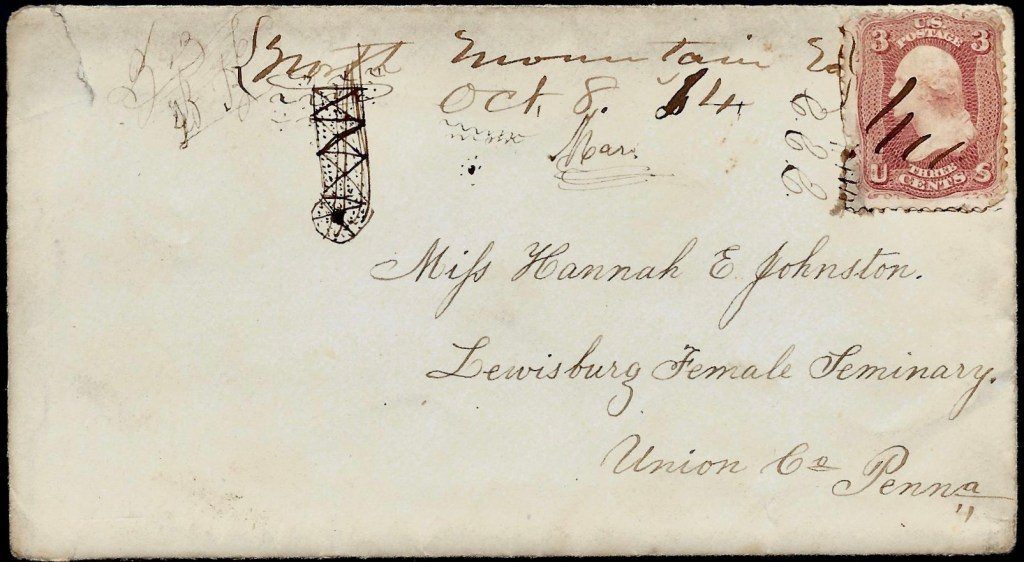 North Mountain
Oct. 8. 64
Mar.
E. E. E.
3 U.S. 3
POSTAGE
U THREE S
CENTS
Miss Hannah E Johnston.
Lewisburg Female Seminary.
Union Co Penna